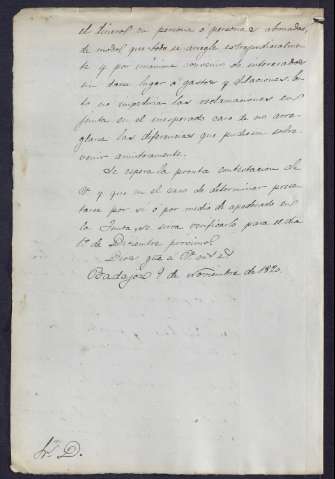 el dinero en persona ó personas abonadas,
de modo que todo se arregle extrajudicialmen
te y por unánime convenio de interesados
sin dar lugar á gastos y dilaciones. Es
to no impedirá las reclamaciones en
junta en el inesperado caso de no arre
glarse las diferencias que pudiesen sobre
venir amistosamente.
Se espera la pronta contestacion de
V. y que en el caso de determinar presen
tarse por sí ó por medio de apoderado en
la Junta, se sirva verificarlo para el dia
1º de Diciembre próximo.
Dios gue á V. ms as
Badajoz 9 de Noviembre de 1820.
Sr. D.